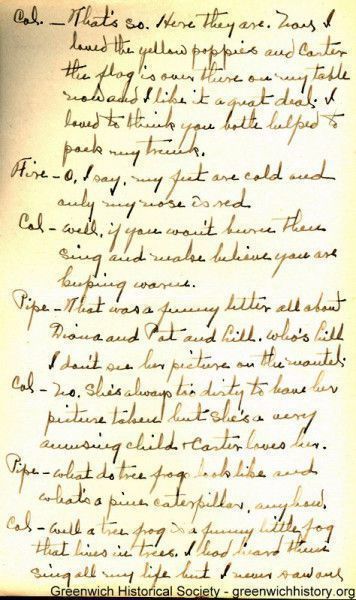 Col. - That's so. Here they are. Now I
loved the yellow poppies and Carter
the flag is over there on my table
now and I like it a great deal. I
loved to think you both helped to
pack my trunk.
Fire - O, I say, my feet are cold and
only my nose is red
Col - well, if you won't burn then
sing and make believe you are
keeping warm.
Pipe - That was a funny letter all about
Diana and Pat and Lill. Who's Lill
I don't see her picture on the mantel.
Col - No. She's always too dirty to have her
picture taken but she's a very
amusing child & Carter loves her.
Pipe - what do tree frogs look like and
what's a pine caterpillar, anyhow.
Col - well a tree frog is a funny little frog
that lives in trees. I had heard them
sing all my life but I never saw one
Greenwich Historical Society - greenwichhistory.org